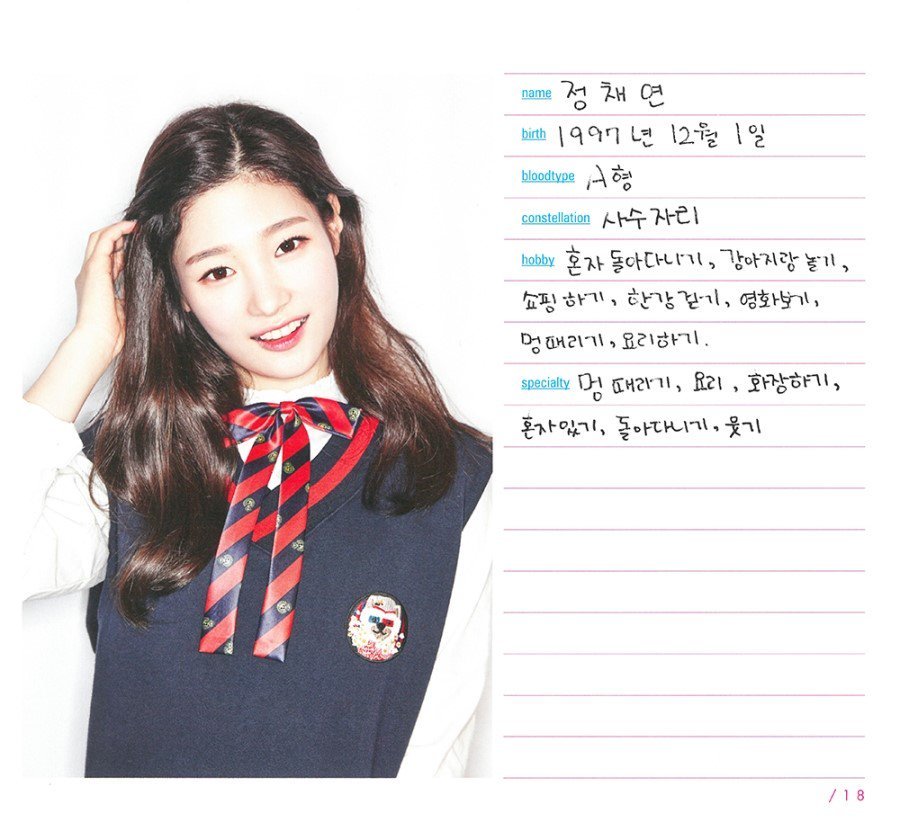 name 정채연
birth 1997년 12월 1일
bloodtype A형
constellation 사수자리
hobby 혼자 돌아다니기, 강아지랑 놀기,
쇼핑하기, 한강 걷기, 영화보기,
멍때리기, 요리하기.
specialty 멍 때리기, 요리, 화장하기,
혼자있기, 돌아다니기, 웃기
/18